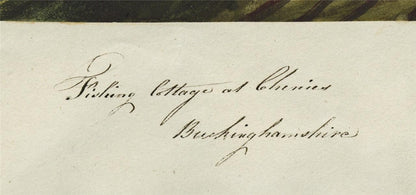 Fishing Cottage at Chenies
Buckinghamshire